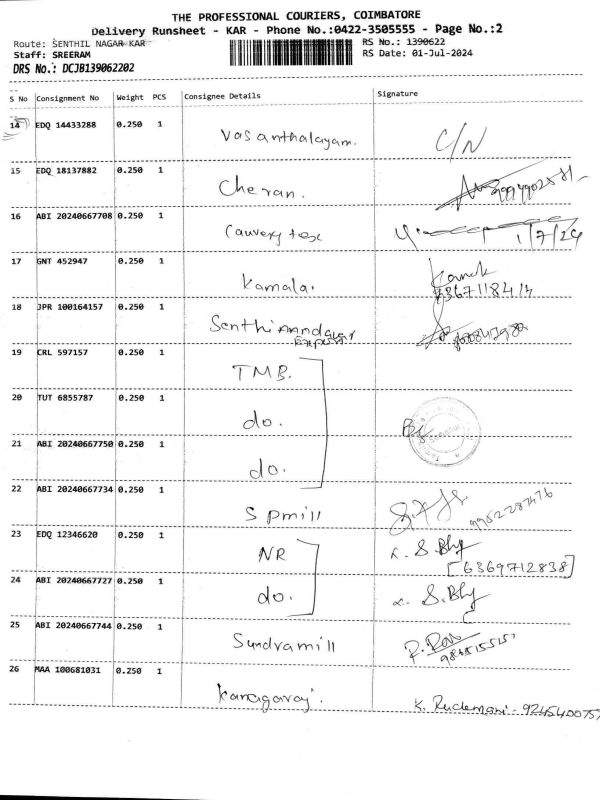 THE PROFESSIONAL COURIERS, COIMBATORE
Delivery Runsheet - KAR - Phone No.:0422-3505555 - Page No.:2
Route: SENTHIL NAGAR KAR RS No.: 1390622
Staff: SREERAM RS Date: 01-Jul-2024
DRS No.: DCJB139062202
S No Consignment No Weight PCS Consignee Details Signature
14 EDQ 14433288 0.250 1 Vasanthalayam. C/N
15 EDQ 18137882 0.250 1 Cheran.
16 ABI 20240667708 0.250 1 Cauvery tex 1/7/24
17 GNT 452947 0.250 1 Kamala.
18 JPR 100164157 0.250 1
19 CRL 597157 0.250 1 TMB.
20 TUT 6855787 0.250 1 do.
21 ABI 20240667750 0.250 1 do.
22 ABI 20240667734 0.250 1 Spmill
23 EDQ 12346620 0.250 1 NR
[6369712838]
24 ABI 20240667727 0.250 1 do.
25 ABI 20240667744 0.250 1 Sundramill
26 MAA 100681031 0.250 1 Kanagaraj.